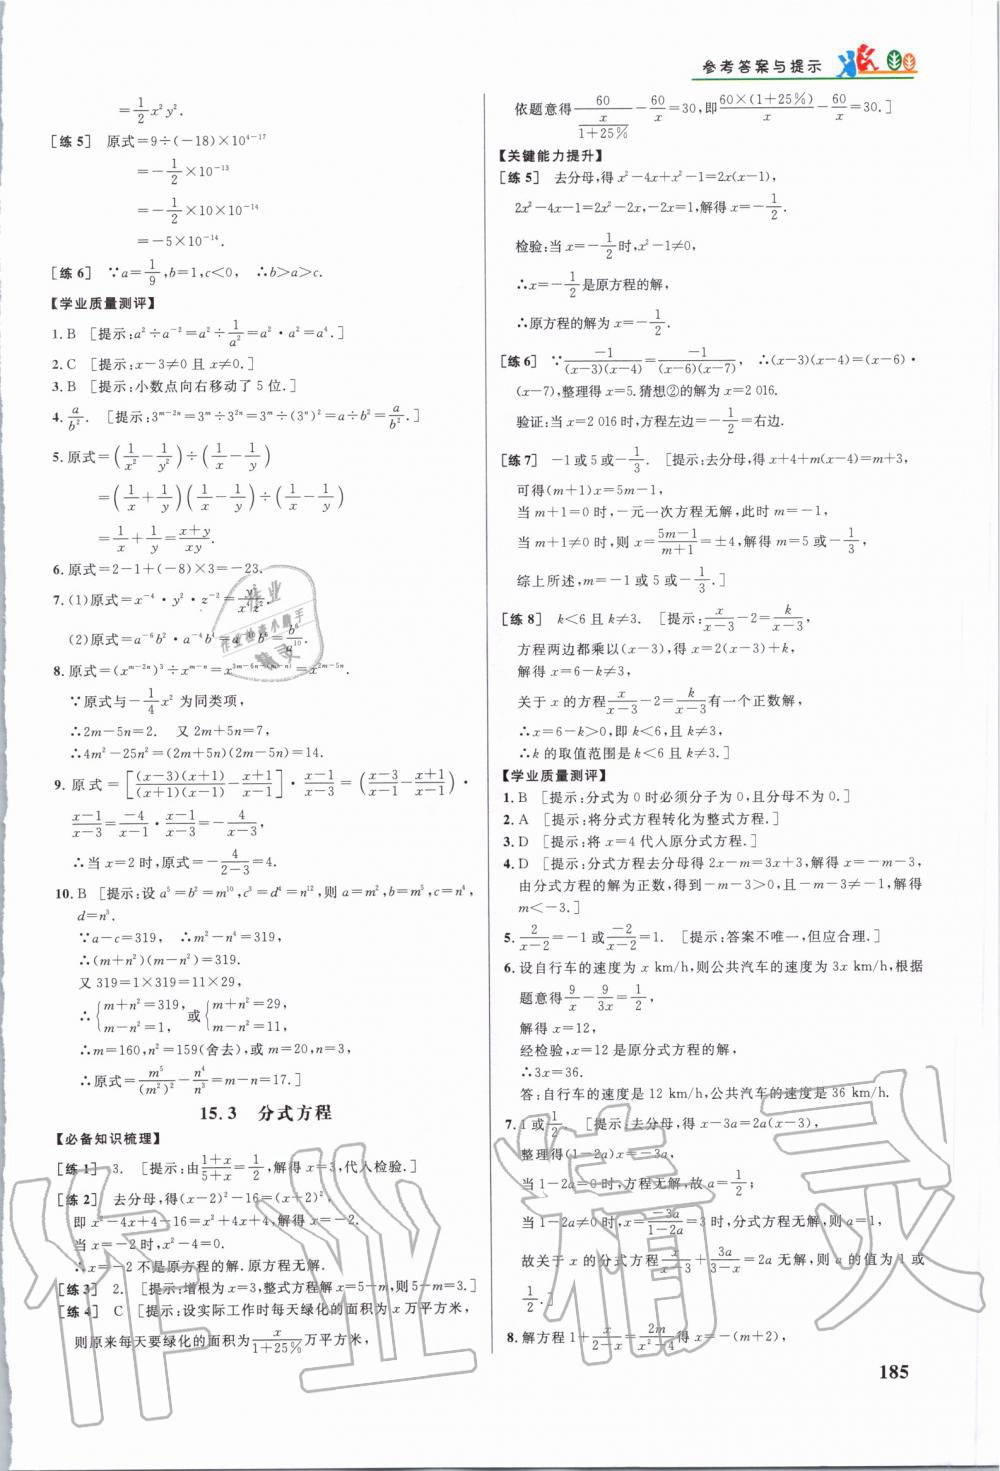 参考答案与提示
=1/2 x²y².
[练5] 原式=9÷(-18)×10⁴⁻¹⁷
=-1/2×10⁻¹³
=-1/2×10×10⁻¹⁴
=-5×10⁻¹⁴.
[练6] ∵a=1/9,b=1,c<0, ∴b>a>c.
【学业质量测评】
1.B [提示:a²÷a⁻²=a²÷1/a²=a²·a²=a⁴.]
2.C [提示:x-3≠0且x≠0.]
3.B [提示:小数点向右移动了5位.]
4.a/b². [提示:3ᵐ⁻²ⁿ=3ᵐ÷3²ⁿ=3ᵐ÷(3ⁿ)²=a÷b²=a/b².]
5.原式=(1/x²-1/y²)÷(1/x-1/y)
=(1/x+1/y)(1/x-1/y)÷(1/x-1/y)
=1/x+1/y=(x+y)/xy.
6.原式=2-1+(-8)×3=-23.
7.(1)原式=x⁻⁴·y²·z⁻²=y²/(x⁴z²).
(2)原式=a⁻⁶b²·a⁻⁴b⁴=a⁻¹⁰b⁶=b⁶/a¹⁰.
8.原式=(xᵐ⁻²ⁿ)³÷xᵐ⁻ⁿ=x³ᵐ⁻⁶ⁿ⁻⁽ᵐ⁻ⁿ⁾=x²ᵐ⁻⁵ⁿ.
∵原式与-1/4 x²为同类项,
∴2m-5n=2. 又2m+5n=7,
∴4m²-25n²=(2m+5n)(2m-5n)=14.
9.原式=[(x-3)(x+1)/((x+1)(x-1))-(x+1)/(x-1)]·(x-1)/(x-3)=((x-3)/(x-1)-(x+1)/(x-1))·
(x-1)/(x-3)=-4/(x-1)·(x-1)/(x-3)=-4/(x-3),
∴当x=2时,原式=-4/(2-3)=4.
10.B [提示:设a⁵=b²=m¹⁰,c³=d⁴=n¹²,则a=m²,b=m⁵,c=n⁴,
d=n³.
∵a-c=319, ∴m²-n⁴=319,
∴(m+n²)(m-n²)=319.
又319=1×319=11×29,
∴{m+n²=319, m-n²=1, 或{m+n²=29, m-n²=11,
∴m=160,n²=159(舍去),或m=20,n=3,
∴原式=m⁵/(m²)²-n⁴/n³=m-n=17.]
15.3 分式方程
【必备知识梳理】
[练1] 3. [提示:由(1+x)/(5+x)=1/2,解得x=3,代入检验.]
[练2] 去分母,得(x-2)²-16=(x+2)²,
即x²-4x+4-16=x²+4x+4,解得x=-2.
当x=-2时,x²-4=0.
∴x=-2不是原方程的解,原方程无解.
[练3] 2. [提示:增根为x=3,整式方程解x=5-m,则5-m=3.]
[练4] C [提示:设实际工作时每天绿化的面积为x万平方米,
则原来每天要绿化的面积为x/(1+25%)万平方米,
依题意得60/(x/(1+25%))-60/x=30,即60×(1+25%)/x-60/x=30.]
【关键能力提升】
[练5] 去分母,得x²-4x+x²-1=2x(x-1),
2x²-4x-1=2x²-2x,-2x=1,解得x=-1/2.
检验:当x=-1/2时,x²-1≠0,
∴x=-1/2是原方程的解,
∴原方程的解为x=-1/2.
[练6] ∵-1/((x-3)(x-4))=-1/((x-6)(x-7)), ∴(x-3)(x-4)=(x-6)·
(x-7),整理得x=5.猜想②的解为x=2 016.
验证:当x=2 016时,方程左边=-1/2=右边.
[练7] -1或5或-1/3. [提示:去分母,得x+4+m(x-4)=m+3,
可得(m+1)x=5m-1,
当m+1=0时,一元一次方程无解,此时m=-1,
当m+1≠0时,则x=(5m-1)/(m+1)=±4,解得m=5或-1/3,
综上所述,m=-1或5或-1/3.]
[练8] k<6且k≠3. [提示:x/(x-3)-2=k/(x-3),
方程两边都乘以(x-3),得x=2(x-3)+k,
解得x=6-k≠3,
关于x的方程x/(x-3)-2=k/(x-3)有一个正数解,
∴x=6-k>0,即k<6,且k≠3,
∴k的取值范围是k<6且k≠3.]
【学业质量测评】
1.B [提示:分式为0时必须分子为0,且分母不为0.]
2.A [提示:将分式方程转化为整式方程.]
3.D [提示:将x=4代入原分式方程.]
4.D [提示:分式方程去分母得2x-m=3x+3,解得x=-m-3,
由分式方程的解为正数,得到-m-3>0,且-m-3≠-1,解得
m<-3.]
5.2/(x-2)=-1或-2/(x-2)=1. [提示:答案不唯一,但应合理.]
6.设自行车的速度为x km/h,则公共汽车的速度为3x km/h,根据
题意得9/x-9/3x=1/2,
解得x=12,
经检验,x=12是原分式方程的解,
∴3x=36.
答:自行车的速度是12 km/h,公共汽车的速度是36 km/h.
7.1或1/2. [提示:去分母,得x-3a=2a(x-3),
整理得(1-2a)x=-3a,
当1-2a=0时,方程无解,故a=1/2;
当1-2a≠0时,x=-3a/(1-2a)=3时,分式方程无解,则a=1,
故关于x的分式方程x/(x-3)+3a/(3-x)=2a无解,则a的值为1或
1/2.]
8.解方程1+x/(2-x)=2m/(x²-4)得x=-(m+2),
185
作业精灵